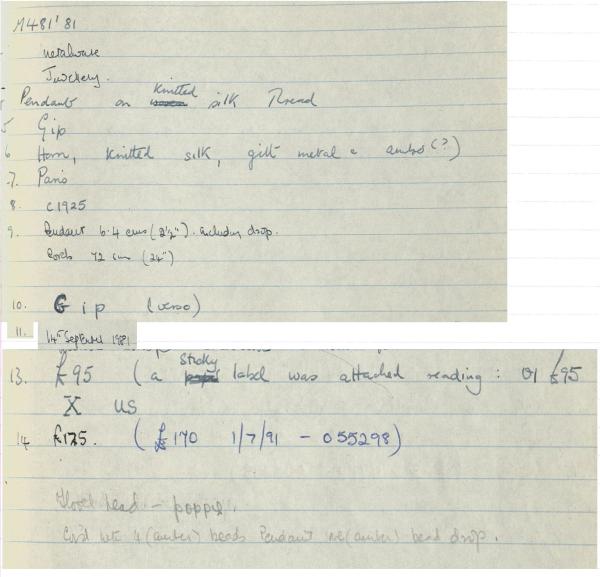 M481'81
metalware
Jewellery.
Pendant on Knitted silk Thread
5 Gip
6 Horn, Knitted silk, gilt metal & amber (?)
7. Paris
8. c1925
9. Pendant 6.4 cms (2½"). including drop.
Cords 72 cm (24")
10. Gip (verso)
11. 14th September 1981
13. £95 (a Sticky label was attached reading: 01 £95
X US
14 £125. (£170 1/7/91 - 055298)
head - poppie.
Cord with 4 (amber) beads Pendant (amber) bead drop.